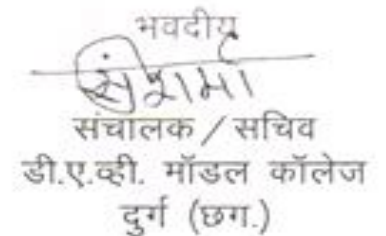 भवदीय
सं शर्मा
संचालक / सचिव
डी.ए.व्ही. मॉडल कॉलेज
दुर्ग (छग.)